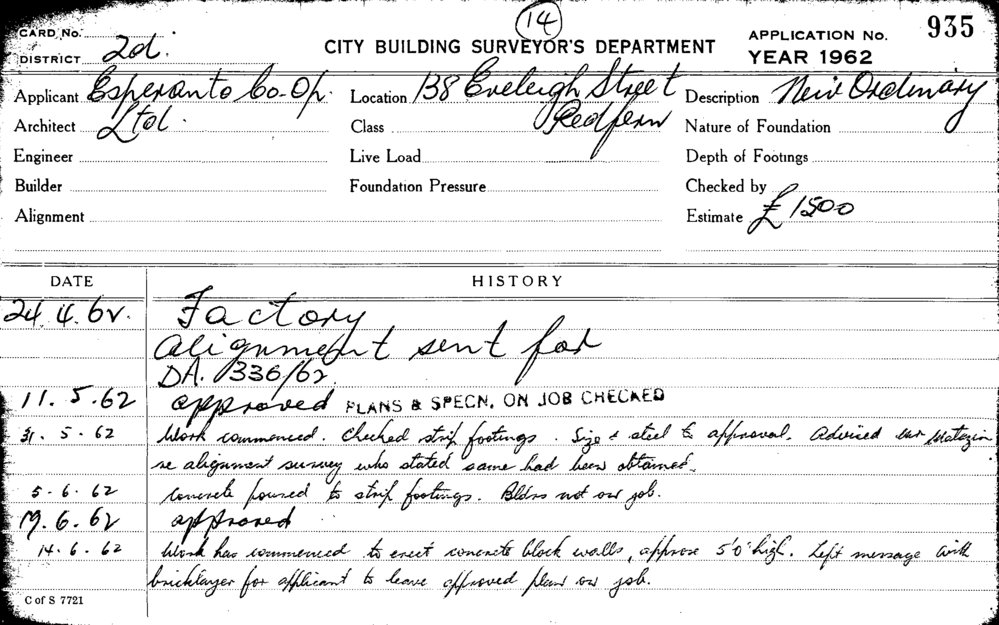 14
CARD No.
DISTRICT 2d.
CITY BUILDING SURVEYOR'S DEPARTMENT
APPLICATION No. 935
YEAR 1962
Applicant Esperanto Co-Op.
Location 138 Eveleigh Street
Description New Ordinary
Architect Ltd.
Class Redfern
Nature of Foundation
Engineer
Live Load
Depth of Footings
Builder
Foundation Pressure
Checked by
Alignment
Estimate £1500
DATE HISTORY
24.4.62. Factory
alignment sent for
DA. 1336/62
11.5.62 approved PLANS & SPECN. ON JOB CHECKED
31.5.62 Work commenced. Checked strip footings. Size & steel to approval. Advised
re alignment survey who stated same had been obtained.
5.6.62 Concrete poured to strip footings. Bldrs not on job.
.6.62 approved
14.6.62 Work has commenced to erect concrete block walls, approx 5'0" high. Left message with
bricklayer for applicant to leave approved plan on job.
C of S 7721